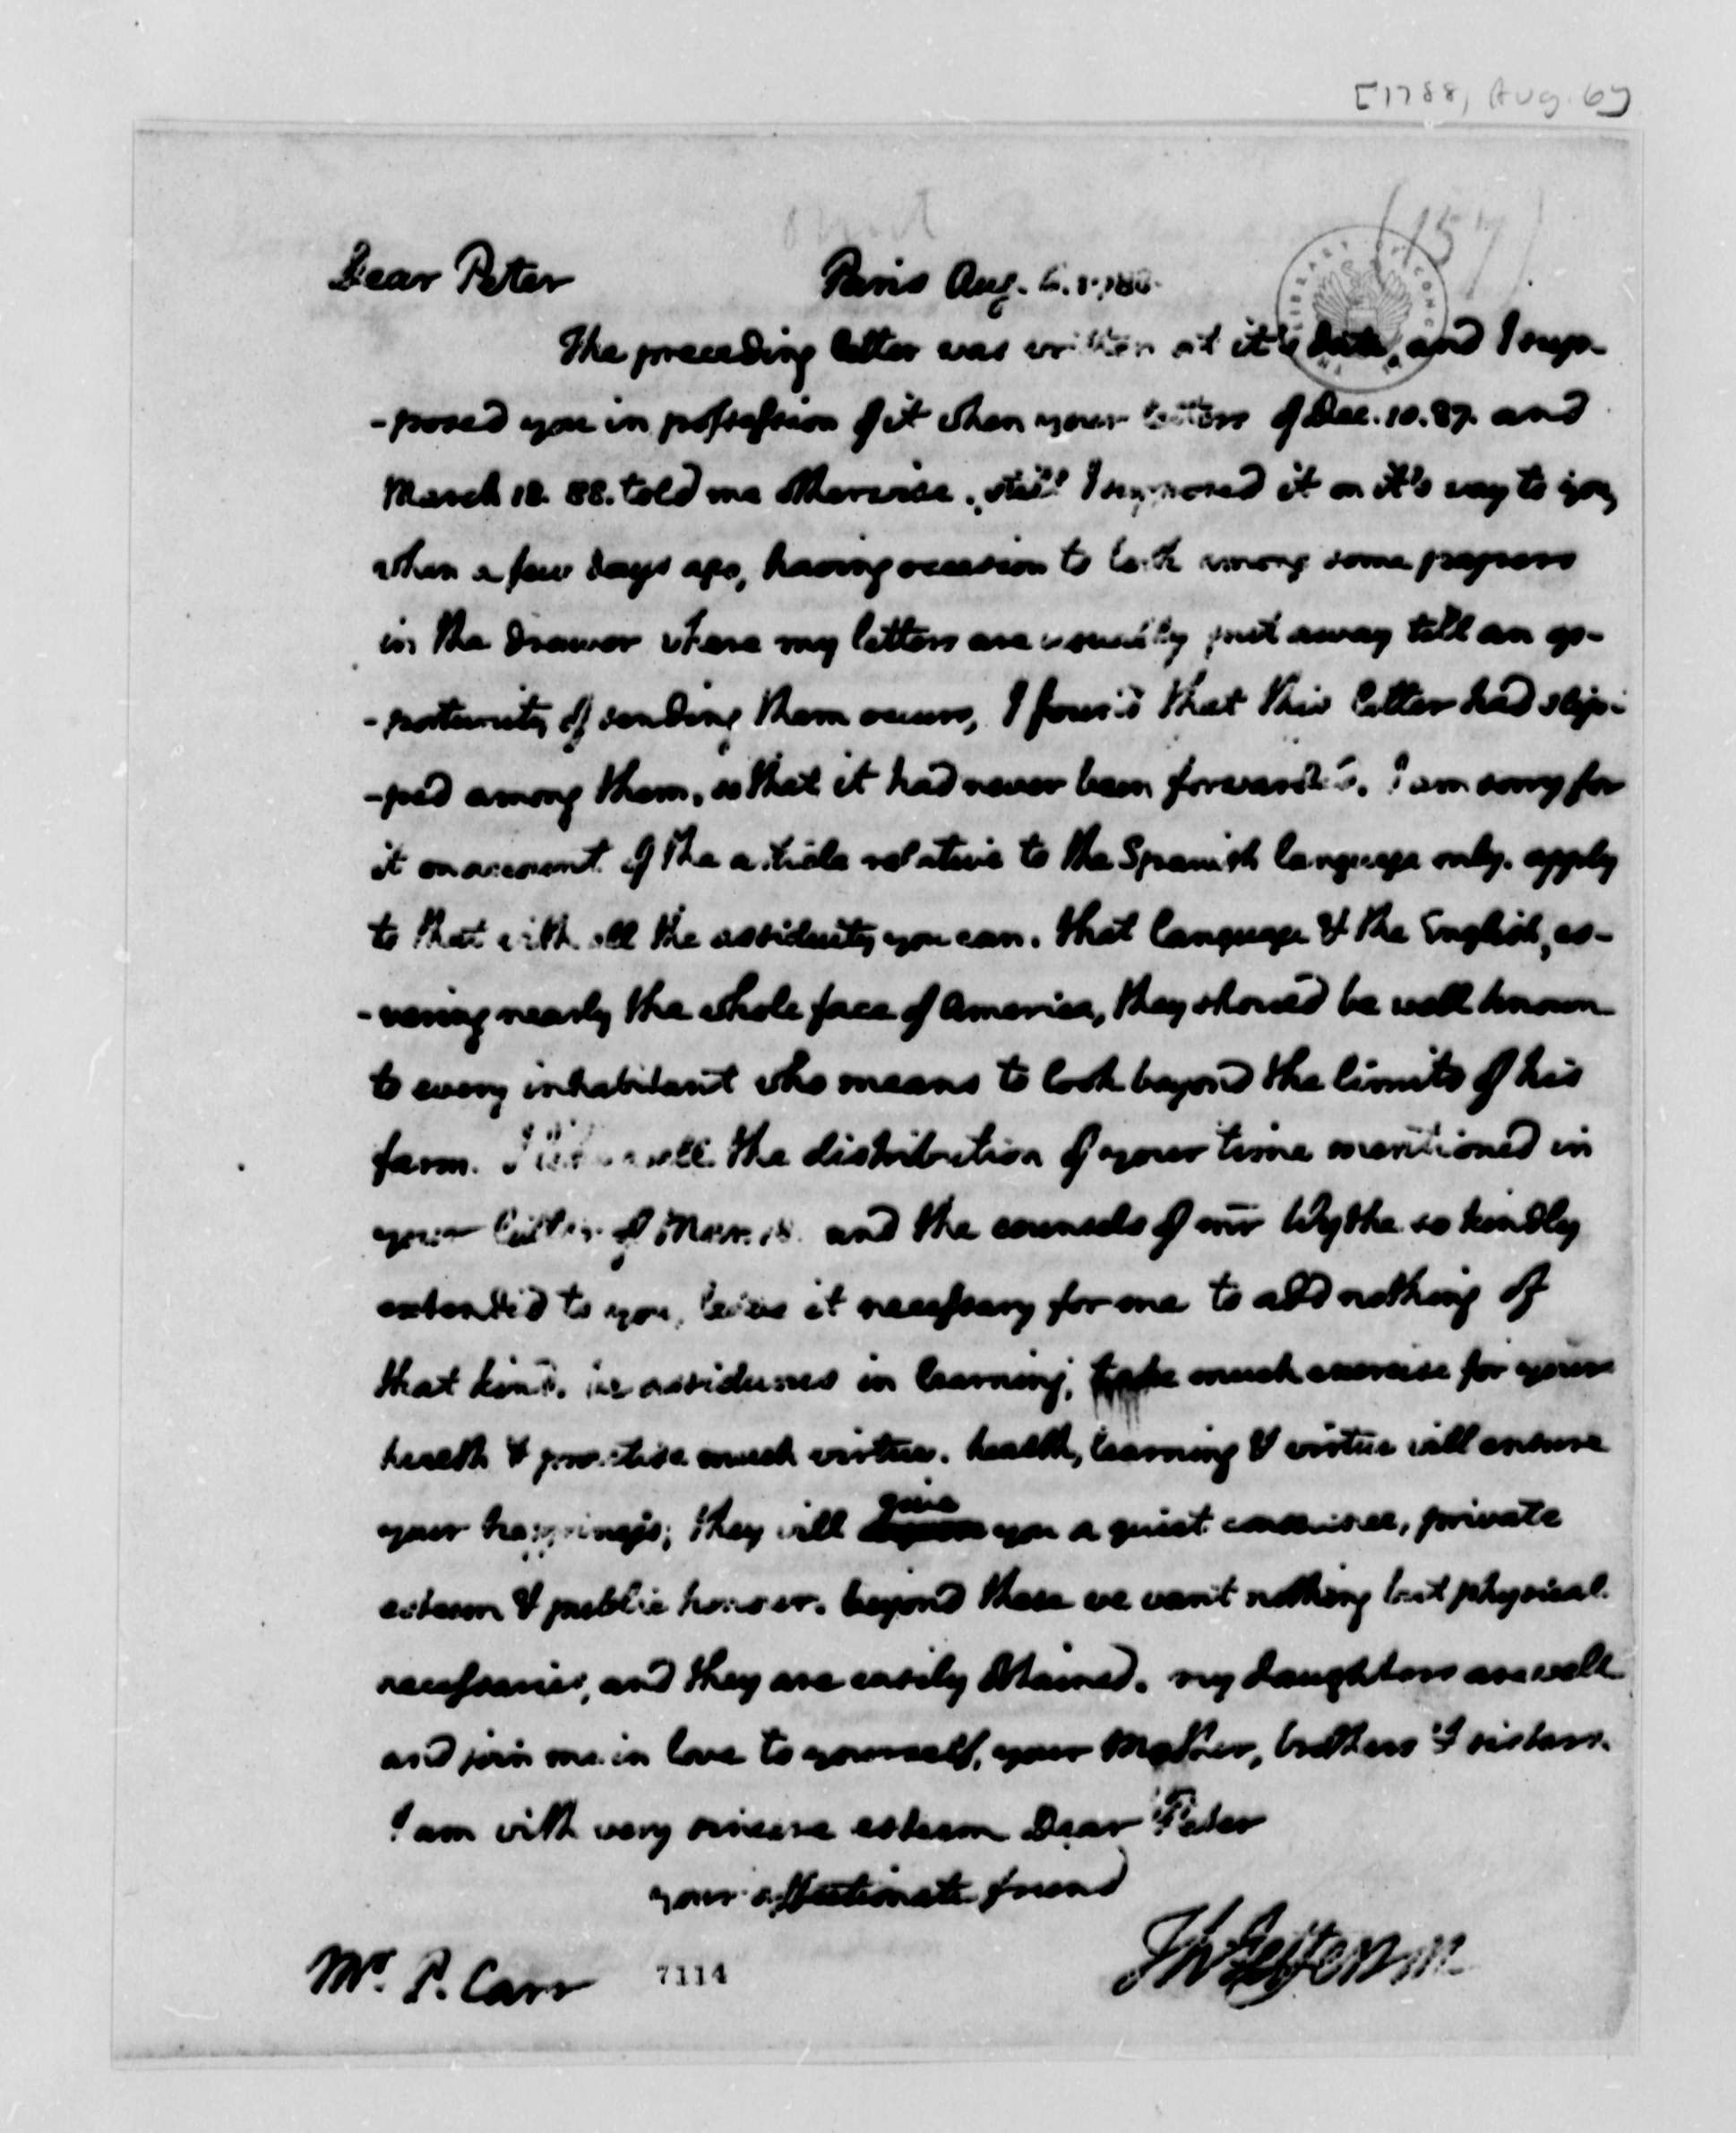 [1788, Aug. 6]
(157)
Dear Peter Paris Aug. 6. 1788.
The preceding letter was written at it's date, and I sup-
-posed you in possession of it when your letters of Dec. 10. 87. and
March 18. 88. told me otherwise. still I supposed it on it's way to you,
when a few days ago, having occasion to look among some papers
in the drawer where my letters are usually put away till an op-
-portunity of sending them occurs, I found that this letter had slip-
-ped among them, so that it had never been forwarded. I am sorry for
it on account of the article relative to the Spanish language only. apply
to that with all the assiduity you can. that language & the English, co-
-vering nearly the whole face of America, they should be well known
to every inhabitant who means to look beyond the limits of his
farm. I well the distribution of your time mentioned in
your letter of Mar. 18. and the counsels of mr Wythe so kindly
extended to you, leave it necessary for me to add nothing of
that kind. be assiduous in learning, take much exercise for your
health & practise much virtue. health, learning & virtue will ensure
your happiness; they will give you a quiet conscience, private
esteem & public honour. beyond these we want nothing but physical
necessaries, and they are easily obtained. my daughters are well
and join me in love to yourself, your Mother, brothers & sisters.
I am with very sincere esteem Dear Peter
your affectionate friend
Th: Jefferson
Mr. P. Carr 7114